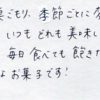 ごもり、季節ごとに
いつも どれも 美味し
毎日 食べても 飽きた
お菓子です!